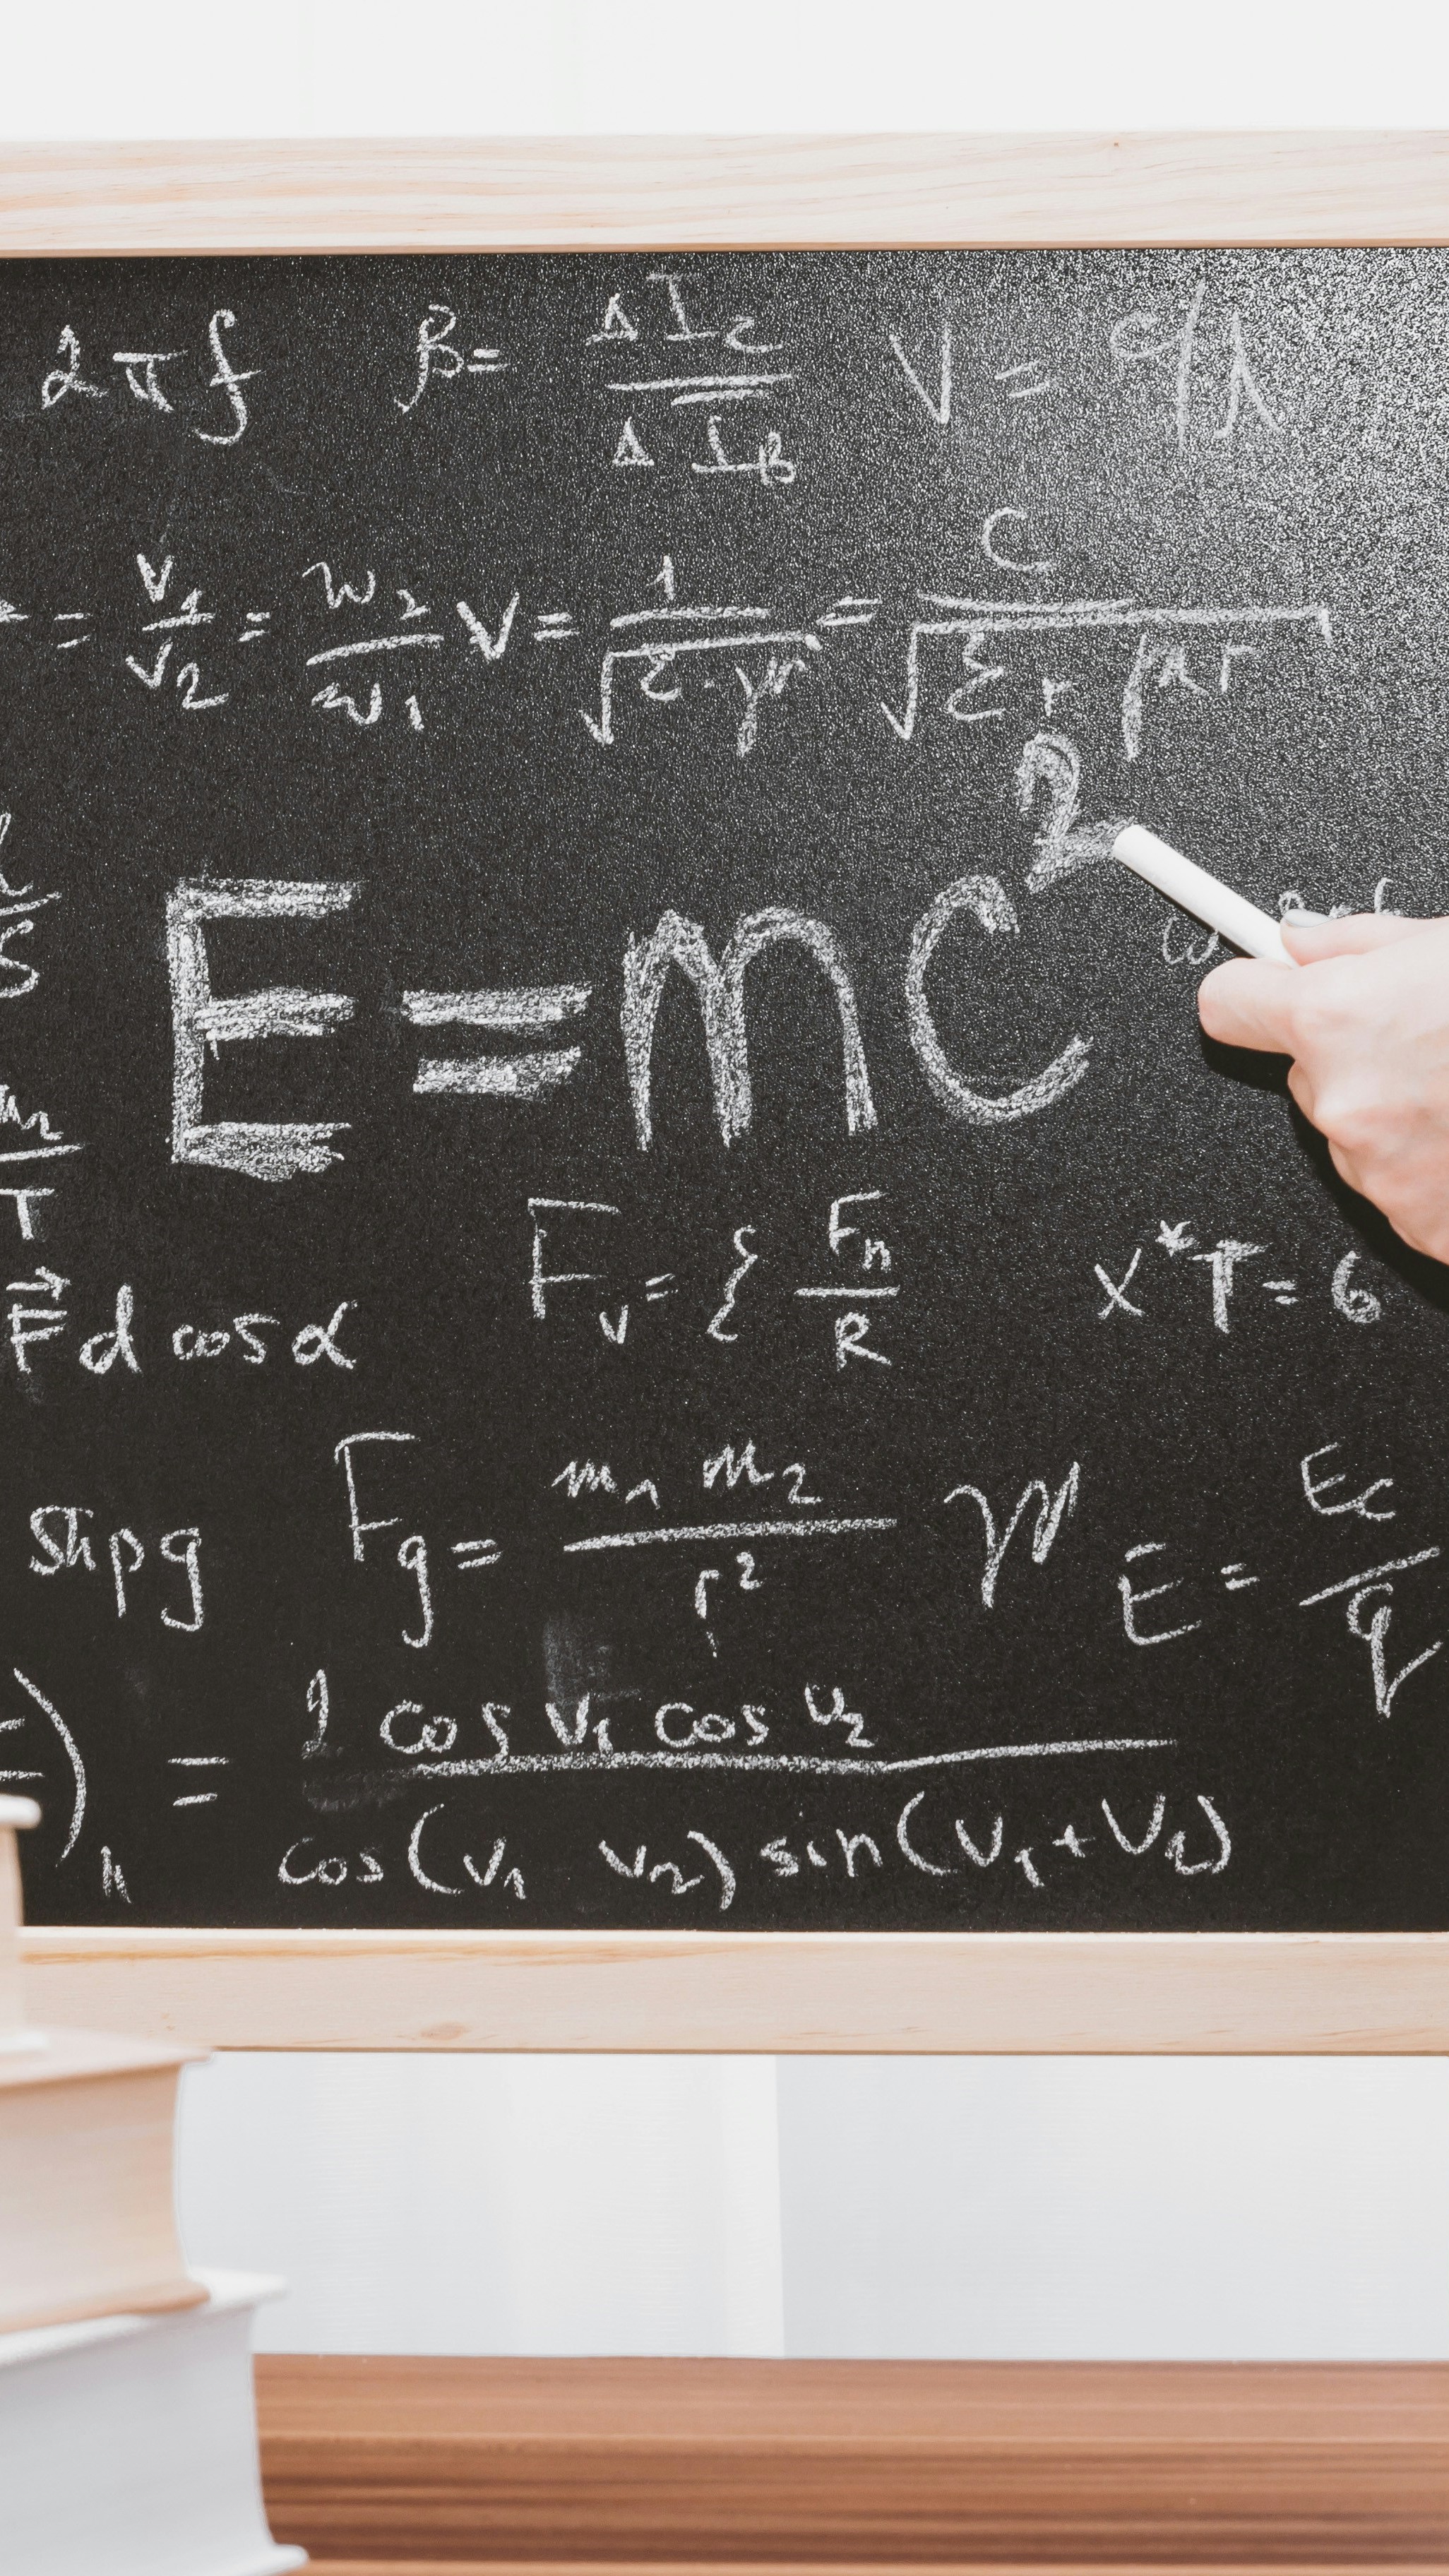 2πf β= ΔI_C / ΔI_B V = c/λ
= v₁/v₂ = w₂/w₁ V = 1/√(ε·μ) = c/√(ε_r μ_r)
E=mc²
F_v = { F_n / R x*T=6
F⃗ d cos α
ship g F_g = m₁ m₂ / r² E = E_c / q
) = 2 cos v₁ cos v₂ / cos(v₁ v₂) sin(v₁+v₂)